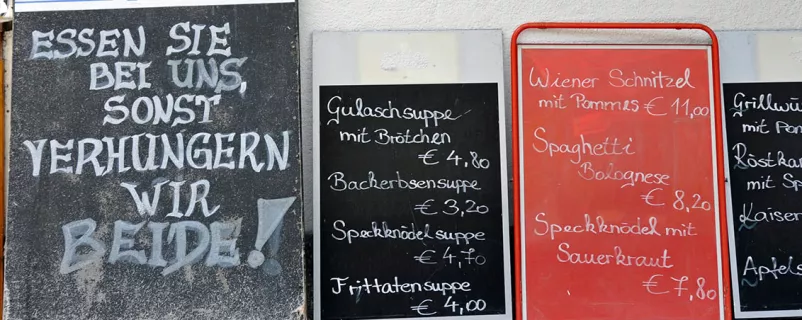 ESSEN SIE
BEI UNS,
SONST
VERHUNGERN
WIR
BEIDE!
Gulaschsuppe
mit Brötchen
€ 4,80
Backerbsensuppe
€ 3,20
Speckknödelsuppe
€ 4,70
Frittatensuppe
€ 4,00
Wiener Schnitzel
mit Pommes € 11,00
Spaghetti
Bolognese
€ 8,20
Speckknödel mit
Sauerkraut
€ 7,80
Grillwü
mit Pom
Röstkar
mit Sp
Kaiser
Apfels